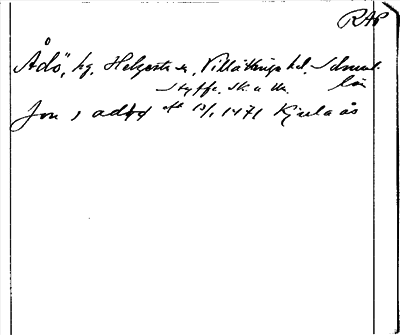 RAP
Ådö, hg. Helgesta sn, Villåttinge hd. Södermanl.
län
Styffe. Sk. u. Un.
Jon i adöö ofk 13/1 1471 Kjulaås